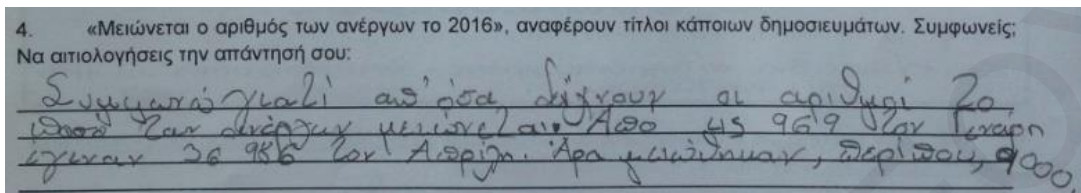 4. «Μειώνεται ο αριθμός των ανέργων το 2016», αναφέρουν τίτλοι κάποιων δημοσιευμάτων. Συμφωνείς;
Να αιτιολογήσεις την απάντησή σου:
Συμφωνώ γιατί απ' όσα δίχνουν οι αριθμοί το
ποσό των ανέργων μειώνεται. Από 45 969 τον Γενάρη
έγιναν 36 986 τον Απρίλη. Άρα μειώθηκαν, περίπου, 9000